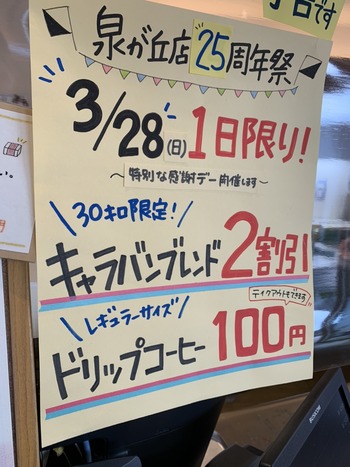 日です
泉が丘店25周年祭
3/28(日)1日限り!
～特別な感謝デー開催します～
30キロ限定!
キャラバンブレンド2割引
テイクアウトもできます
レギュラーサイズ
ドリップコーヒー100円